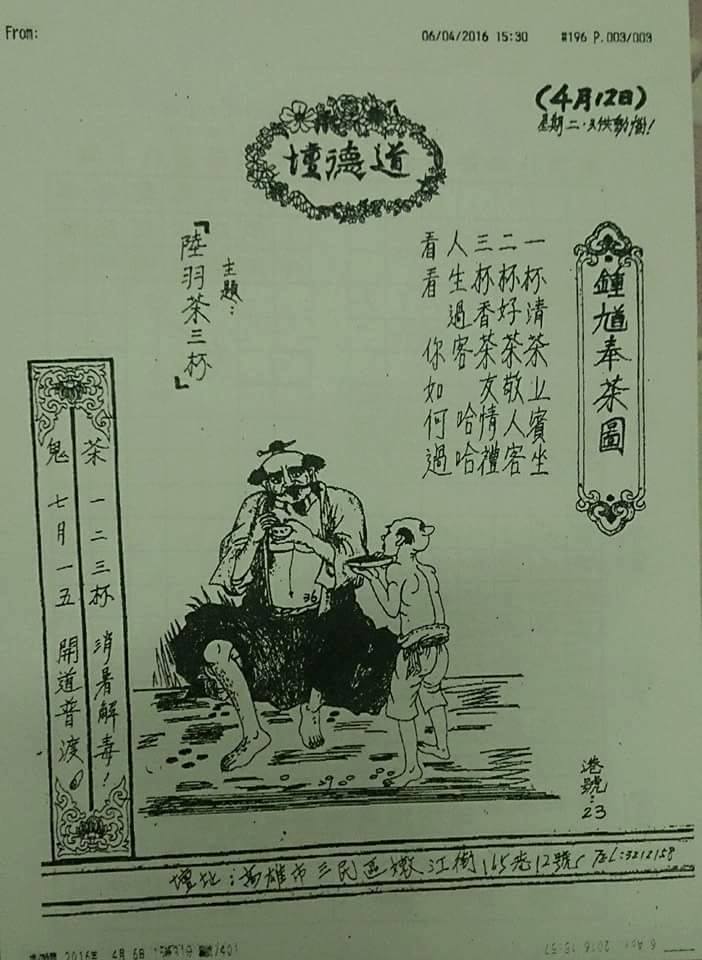 From:
06/04/2016 15:30 #196 P.003/003
(4月12日)
道德壇
鍾馗奉茶圖
一杯清茶上賓坐
二杯好茶敬人客
三杯香茶友情禮
人生過客 哈哈
看看 你如何過
主題：
『陸羽茶三杯』
茶 一二三杯 消暑解毒！
鬼 七月一五 開道普渡
36
港號：23
壇址：高雄市三民區 江街165巷12號 TEL:3212158
2016年 4月 6日